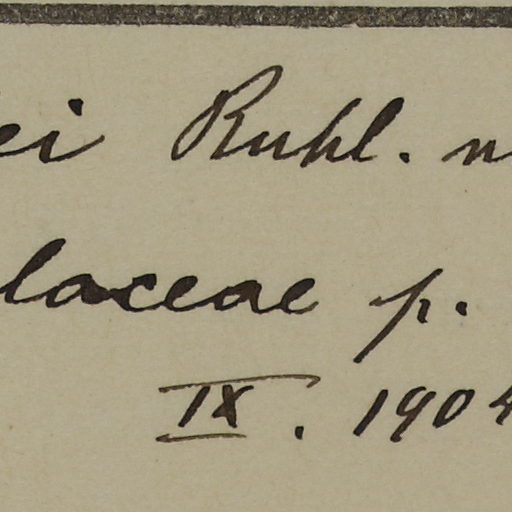 ei Ruhl. n
laceae p.
IX. 1904